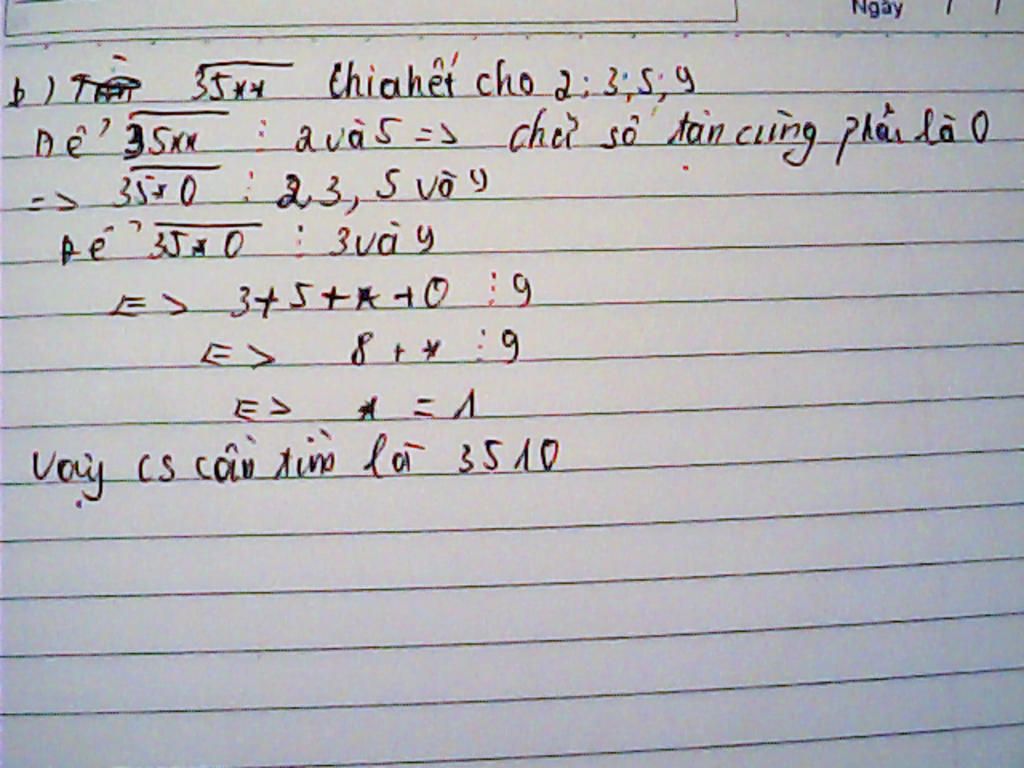 Ngày / /
b) 35** chia hết cho 2; 3; 5; 9
Để 35** ⋮ 2 và 5 => chữ số tận cùng phải là 0
=> 35*0 ⋮ 2, 3, 5 và 9
Để 35*0 ⋮ 3 và 9
<=> 3+5+*+0 ⋮ 9
<=> 8 + * ⋮ 9
<=> * = 1
Vậy CS cần tìm là 3510